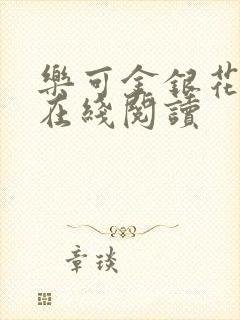 樂可金銀花
在綫閱讀
章琰